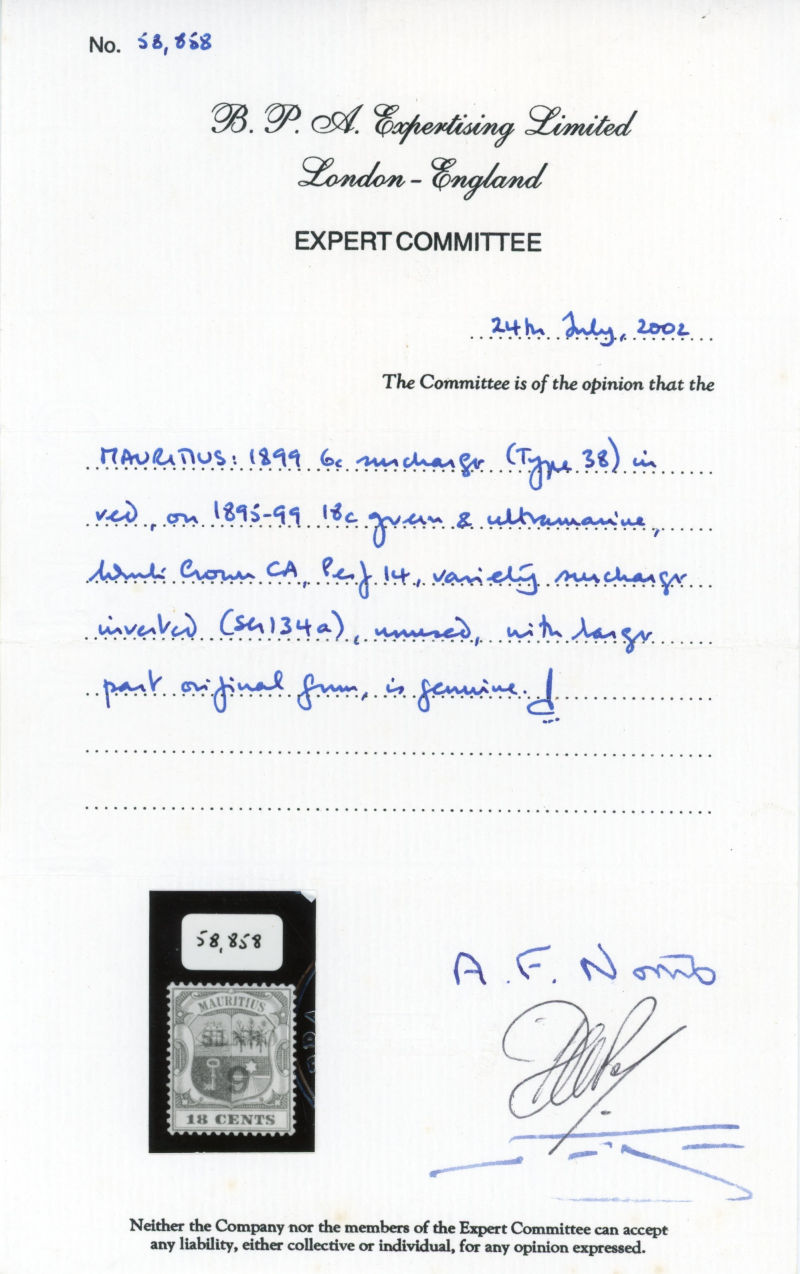 No. 58,858
B. P. A. Expertising Limited
London - England
EXPERT COMMITTEE
24th July, 2002
The Committee is of the opinion that the
MAURITIUS: 1899 6c surcharge (Type 38) in
red, on 1895-99 18c green & ultramarine,
wmk Crown CA, Perf 14, variety surcharge
inverted (SG134a), unused, with large
part original gum, is genuine.
58,858
MAURITIUS
CENTS
6
18 CENTS
A. F. Norris
Neither the Company nor the members of the Expert Committee can accept
any liability, either collective or individual, for any opinion expressed.